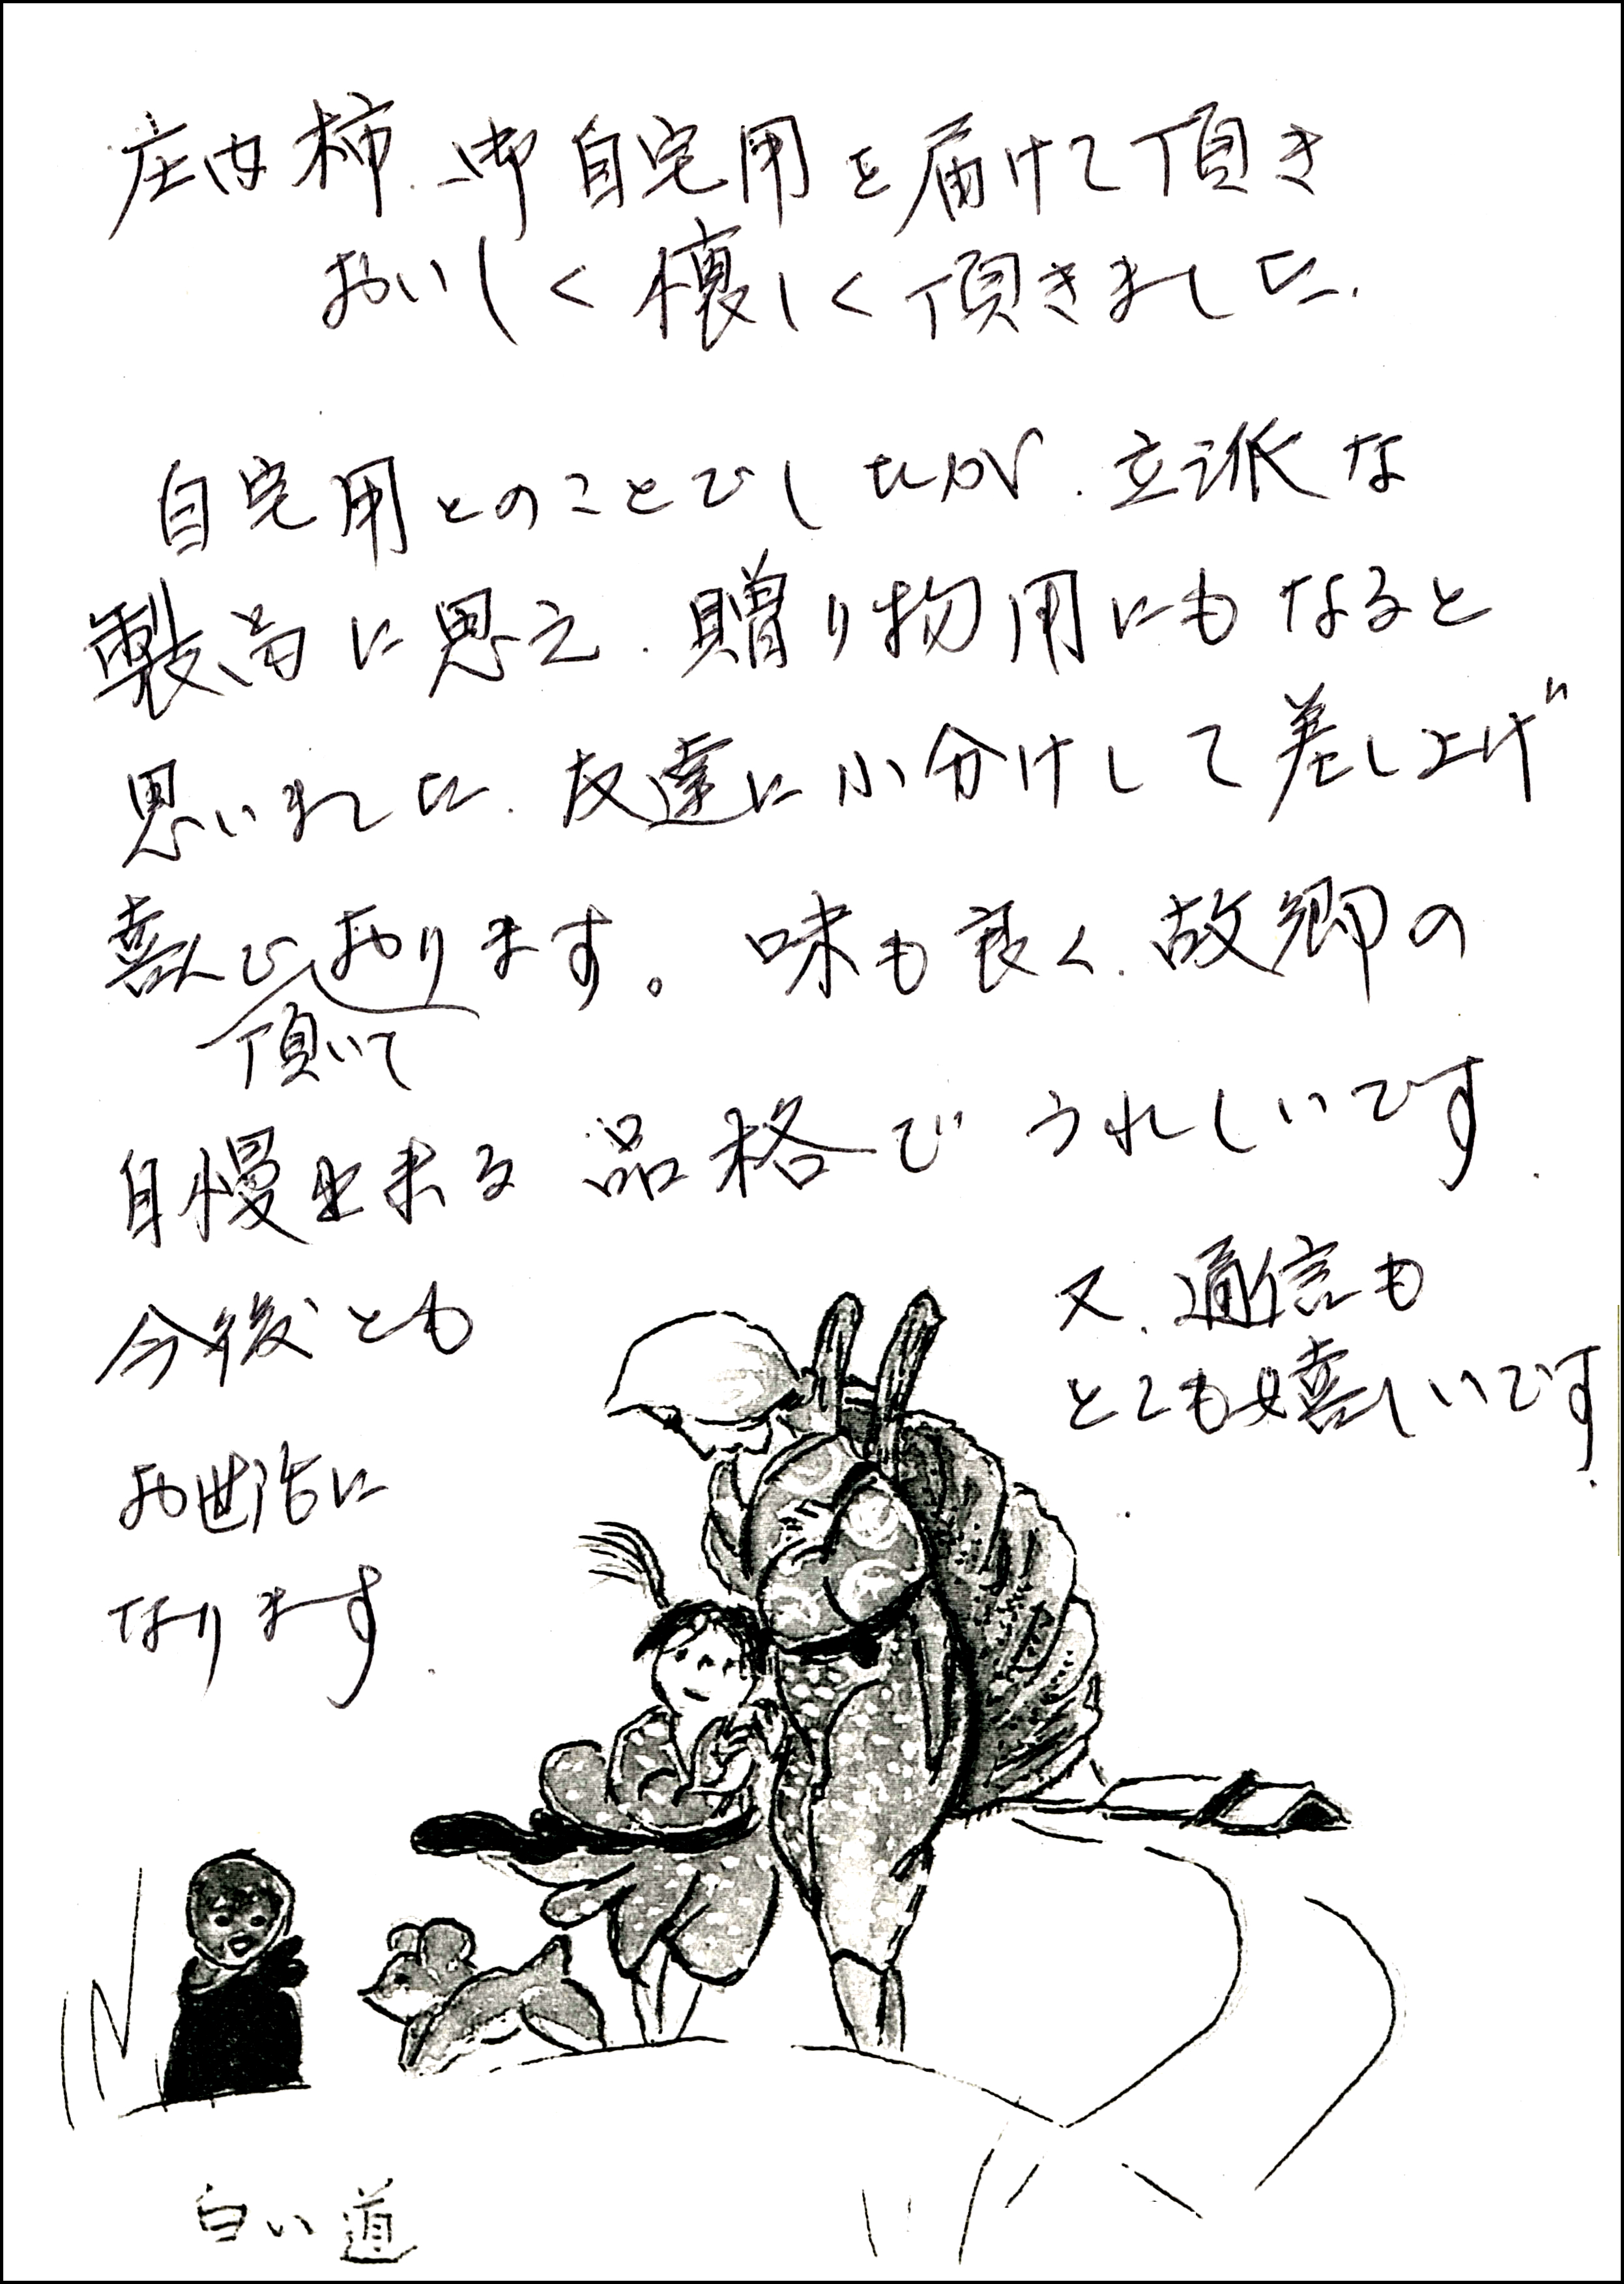 庄内柿、御自宅用を届けて頂き
おいしく懐しく頂きました。
自宅用とのことでしたが、立派な
製品に思え、贈り物用にもなると
思いました。友達に小分けして差し上げ
喜んでおります。味も良く、故郷の
頂いて
自慢出来る品格でうれしいです。
又、通信も
とても嬉しいです。
今後とも
お世話に
なります。
白い道